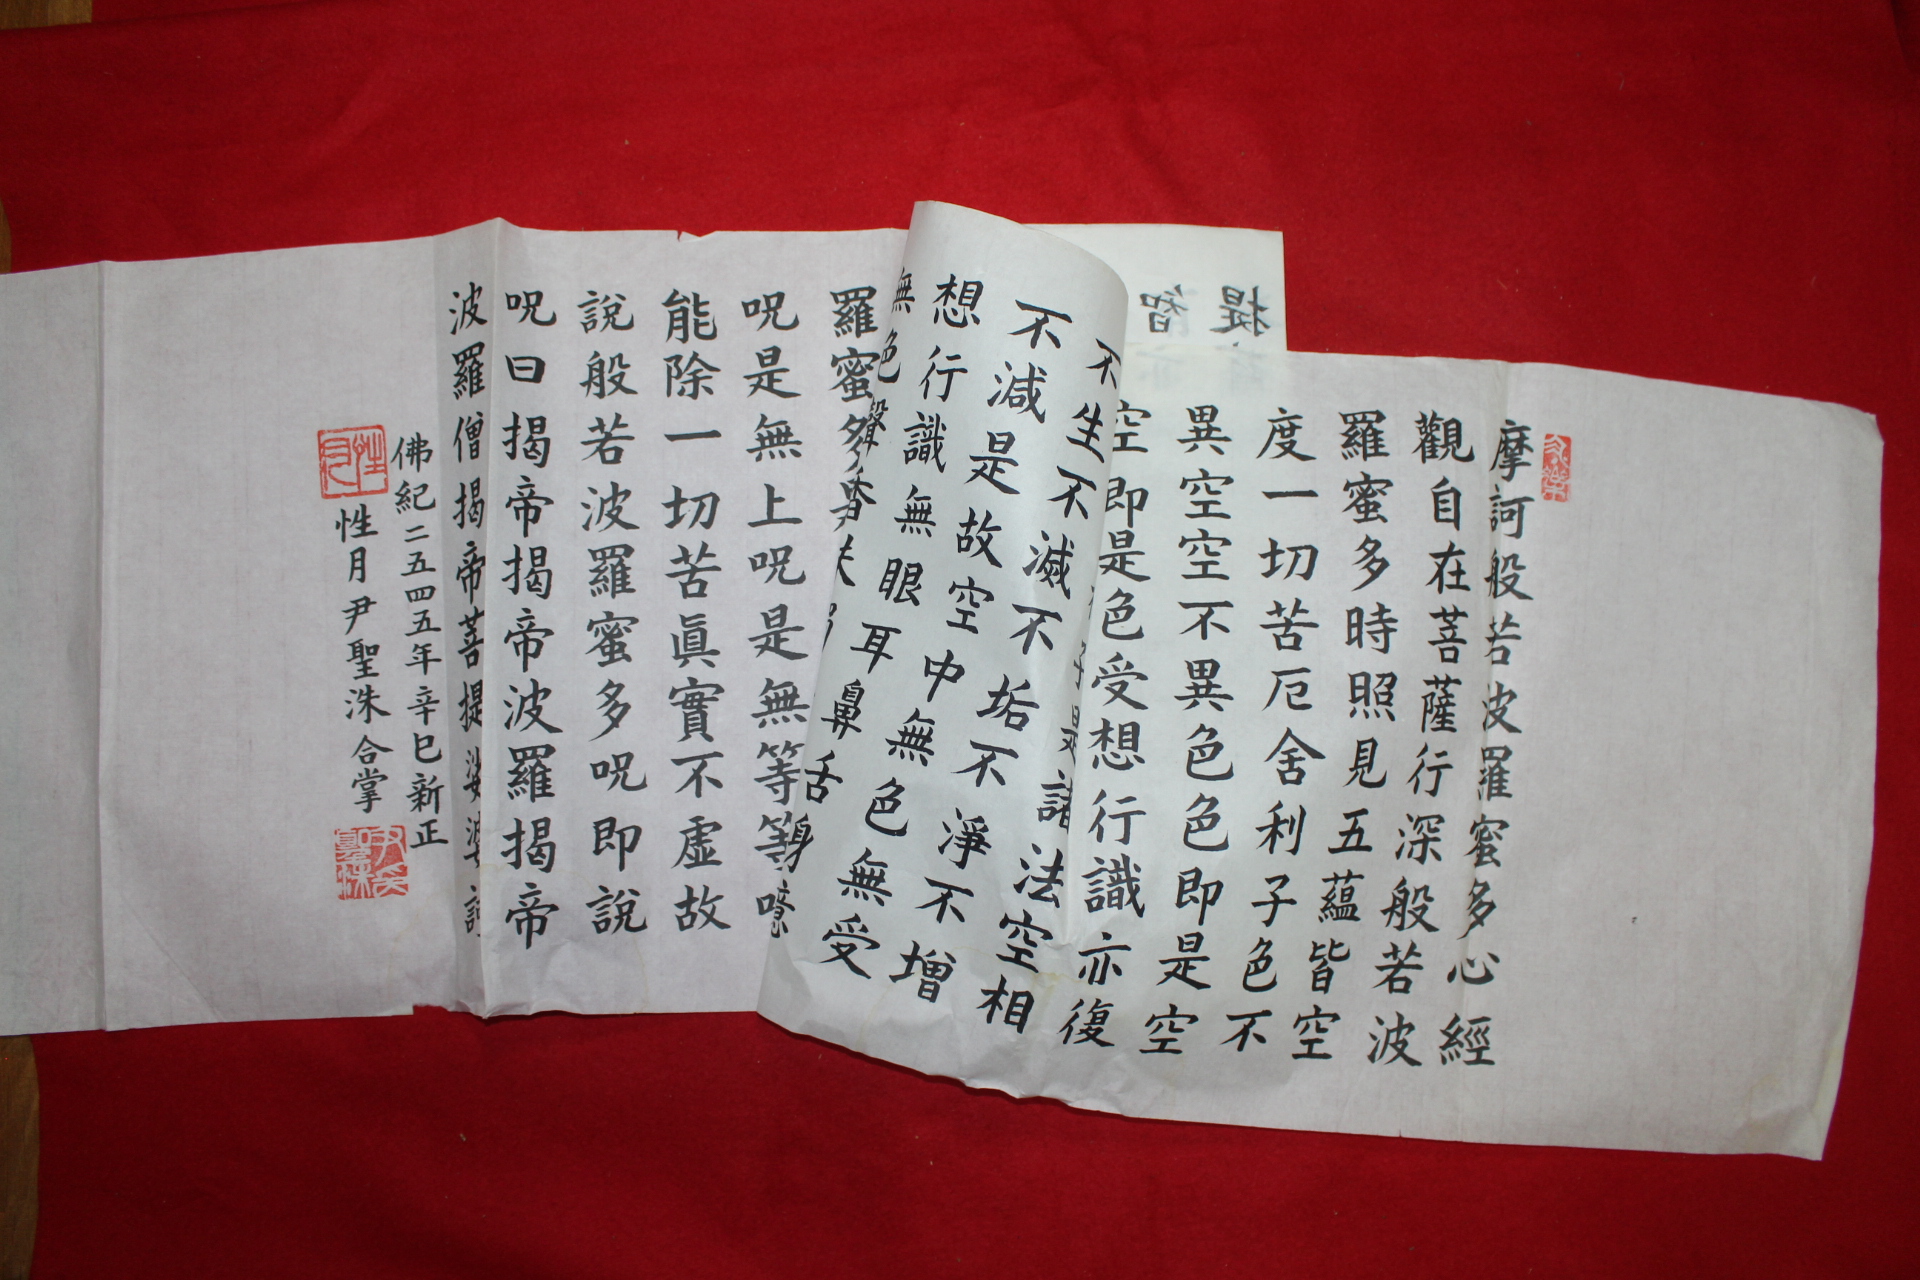 摩訶般若波羅蜜多心經
觀自在菩薩行深般若波
羅蜜多時照見五蘊皆空
度一切苦厄舍利子色不
異空空不異色色即是空
空即是色受想行識亦復
子是諸法空相
不生不滅不垢不淨不增
不減是故空中無色無受
想行識無眼耳鼻舌身
無色聲香
提
智
羅蜜多
呪是無上呪是無等等
能除一切苦眞實不虛故
說般若波羅蜜多呪即說
呪曰揭帝揭帝波羅揭帝
波羅僧揭帝菩提娑婆訶
佛紀二五四五年辛巳新正
性月尹聖洙合掌
性月